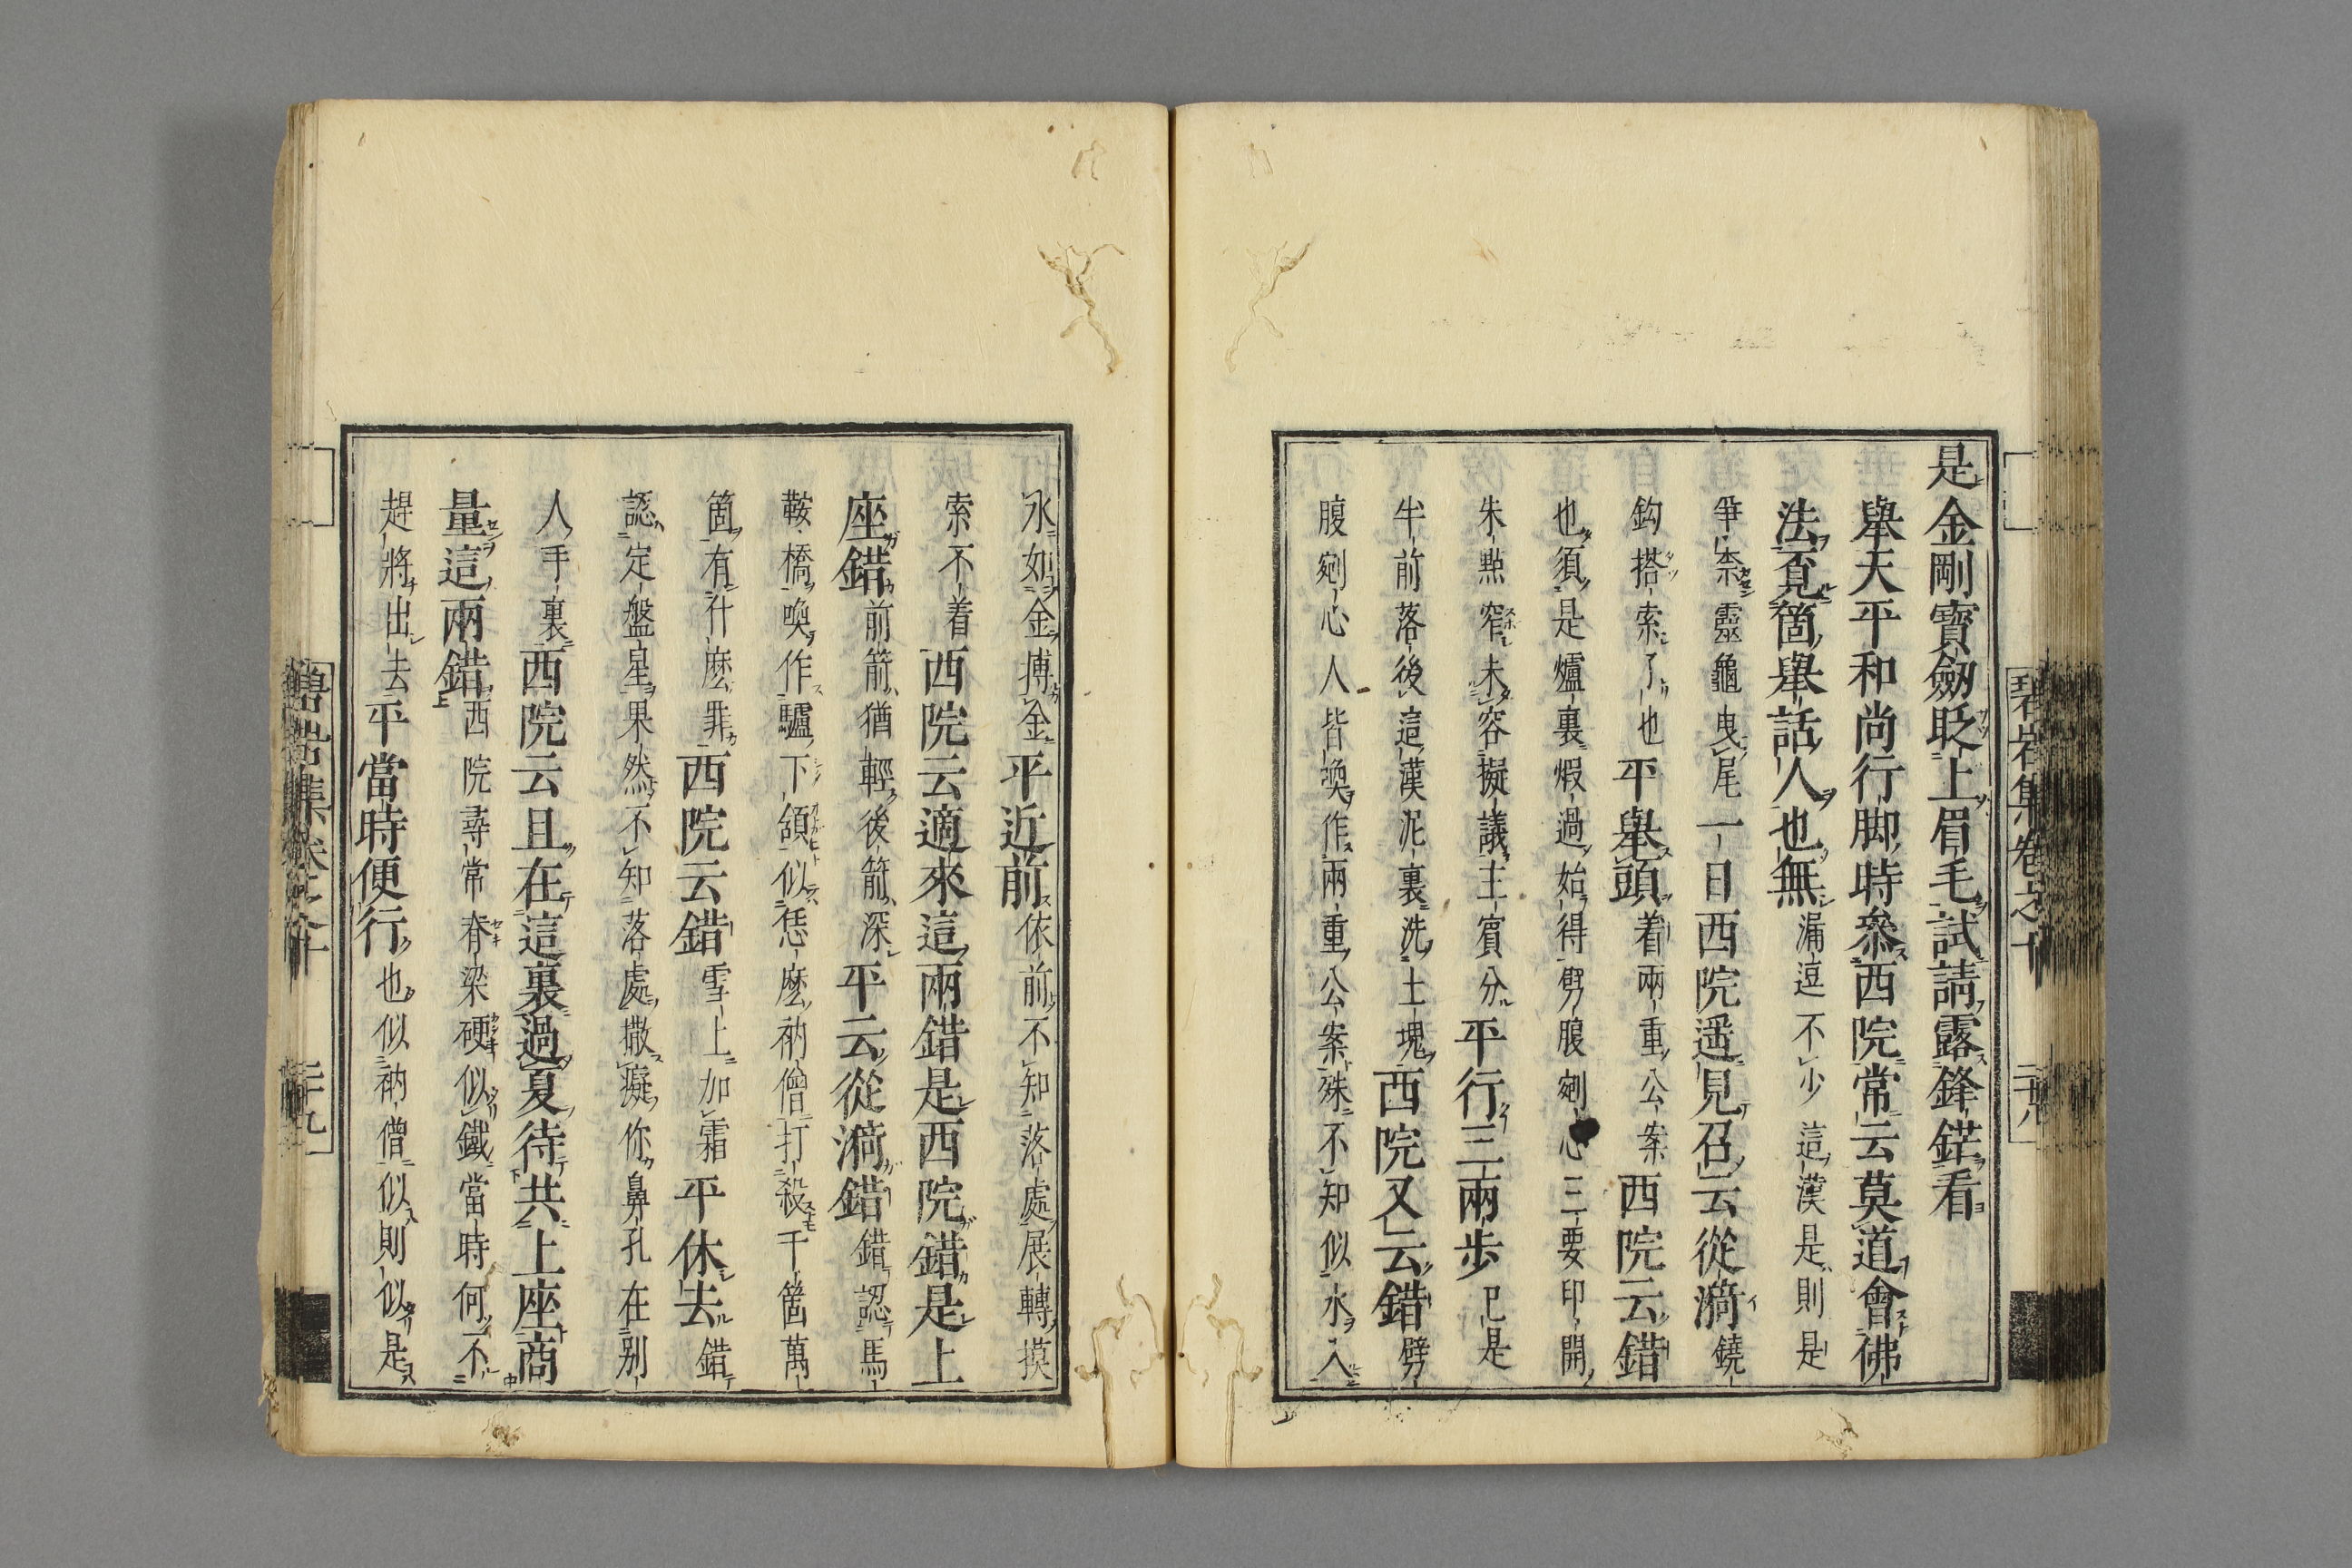 是金剛寶劒眨上眉毛試請露鋒鋩看
擧天平和尚行脚時叅西院常云莫道會佛
法覓箇擧話人也無漏逗不少這漢是則是
爭柰靈龜曳尾一日西院遥見召云從漪鐃
鈎搭索了也平擧頭着兩重公案西院云錯
也須是爐裏煆過始得劈腹剜心三要印開
朱點窄未容擬議主賓分平行三兩步已是
半前落後這漢泥裏洗土塊西院又云錯劈
腹剜心人皆喚作兩重公案殊不知似水入
水如金搏金平近前依前不知落處展轉摸
索不着西院云適來這兩錯是西院錯是上
座錯前箭猶輕後箭深平云從漪錯錯認馬
鞍橋喚作驢下頷似恁麽衲僧打殺千箇萬
箇有什麽罪西院云錯雪上加霜平休去錯
認定盤星果然不知落處撒癡你鼻孔在别
人手裏西院云且在這裏過夏待共上座商
量這兩錯西院尋常脊梁硬似鐵當時何不
趕將出去平當時便行也似衲僧似則似是
碧岩集卷之十 二十八
碧岩集卷之十 二十九